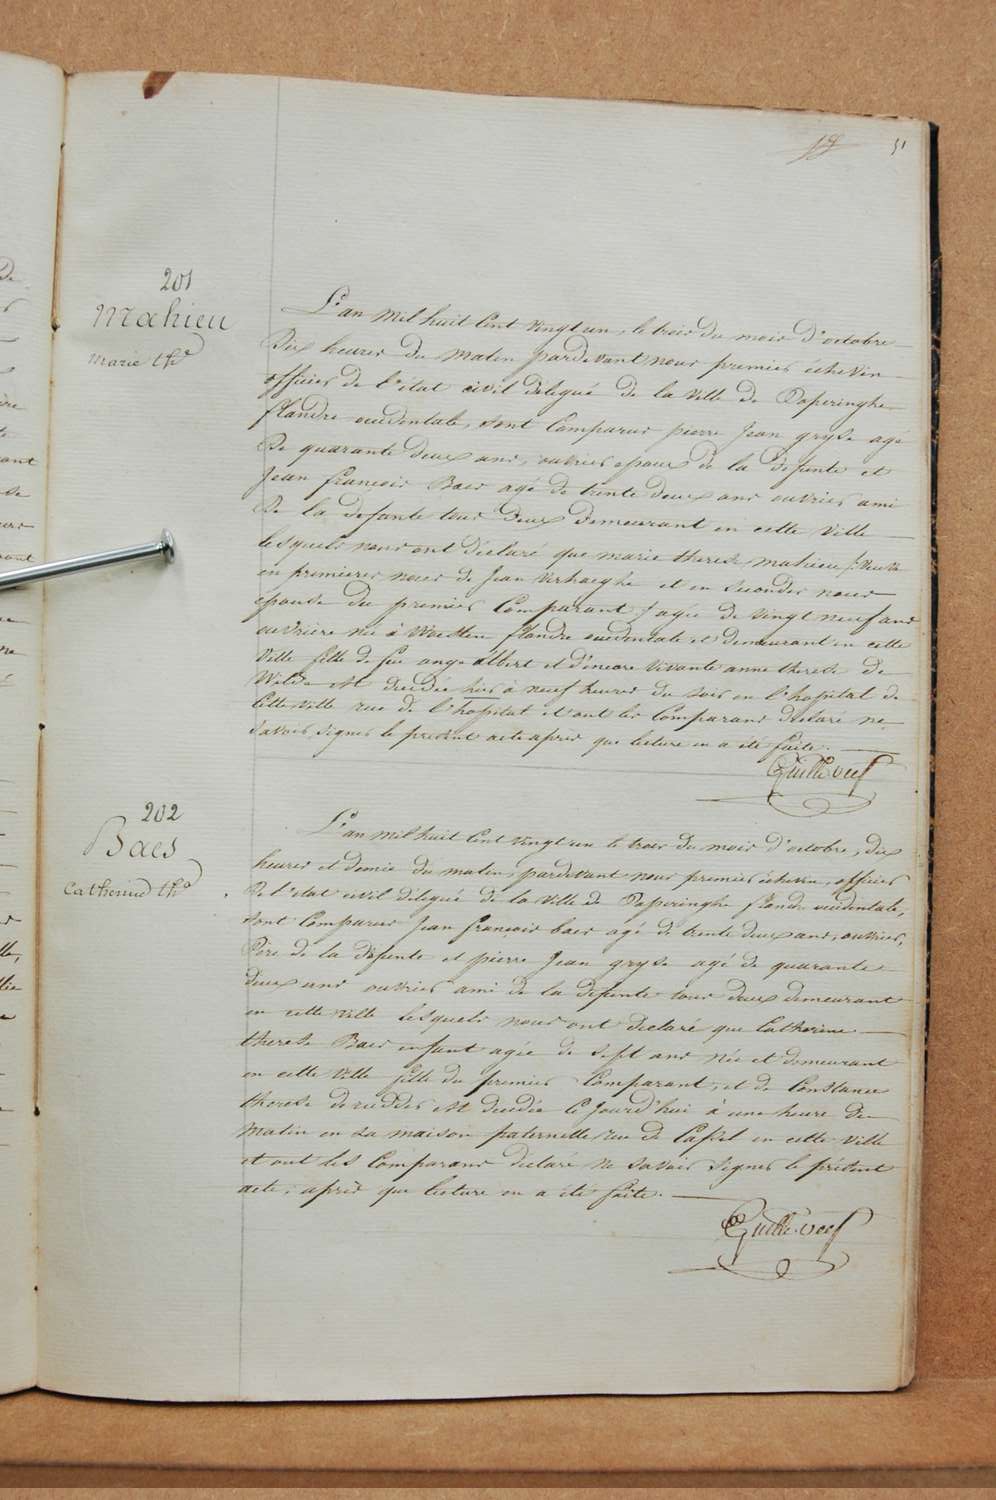 51
201
Mahieu
marie th.e
L'an mil huit Cent vingt un, le trois du mois d'octobre
Dix heures du matin pardevant nous premier echevin
officier de l'état civil délégué de la ville de Poperinghe
flandre occidentale, sont Comparus pierre Jean gryse agé
De quarante deux ans, ouvrier epoux de la défunte et
Jean françois Baes agé de trente deux ans ouvrier ami
De la defunte tous deux demeurant en cette ville
lesquels nous ont déclaré que marie therese mahieu /: veuve
en premieres noces de Jean Verhaeghe et en secondes noces
epouse du premier Comparant :/ agée de vingt neuf ans
ouvriere née à Woesten flandre occidentale et demeurant en cette
Ville fille de feu ange albert et d'encore vivante anne therese de
Wilde est decedée hier à neuf heures du soir en l'hopital de
Cette ville rue de l'hopital et ont les Comparans declaré ne
savoir signer le present acte apres que lecture en a été faite.
202
Baes
Catherine th.e
L'an mil huit Cent vingt un le trois du mois d'octobre, dix
heures et demie du matin, pardevant nous premier echevin, officier
De l'etat civil délégué de la ville de Poperinghe flandre occidentale,
sont Comparus Jean françois baes agé de trente deux ans, ouvrier,
Père de la défunte et pierre Jean gryse agé de quarante
deux ans ouvrier ami de la défunte tous deux demeurant
en cette ville lesquels nous ont declaré que Catherine
therese Baes enfant agée de sept ans née et demeurant
en cette ville fille du premier Comparant, et de Constance
therese deridder est decedée Ce jourd'hui à une heure du
matin en sa maison paternelle rue de Cassel en cette ville
et ont les Comparans declaré ne savoir signer le présent
acte, après que lecture en a été faite.